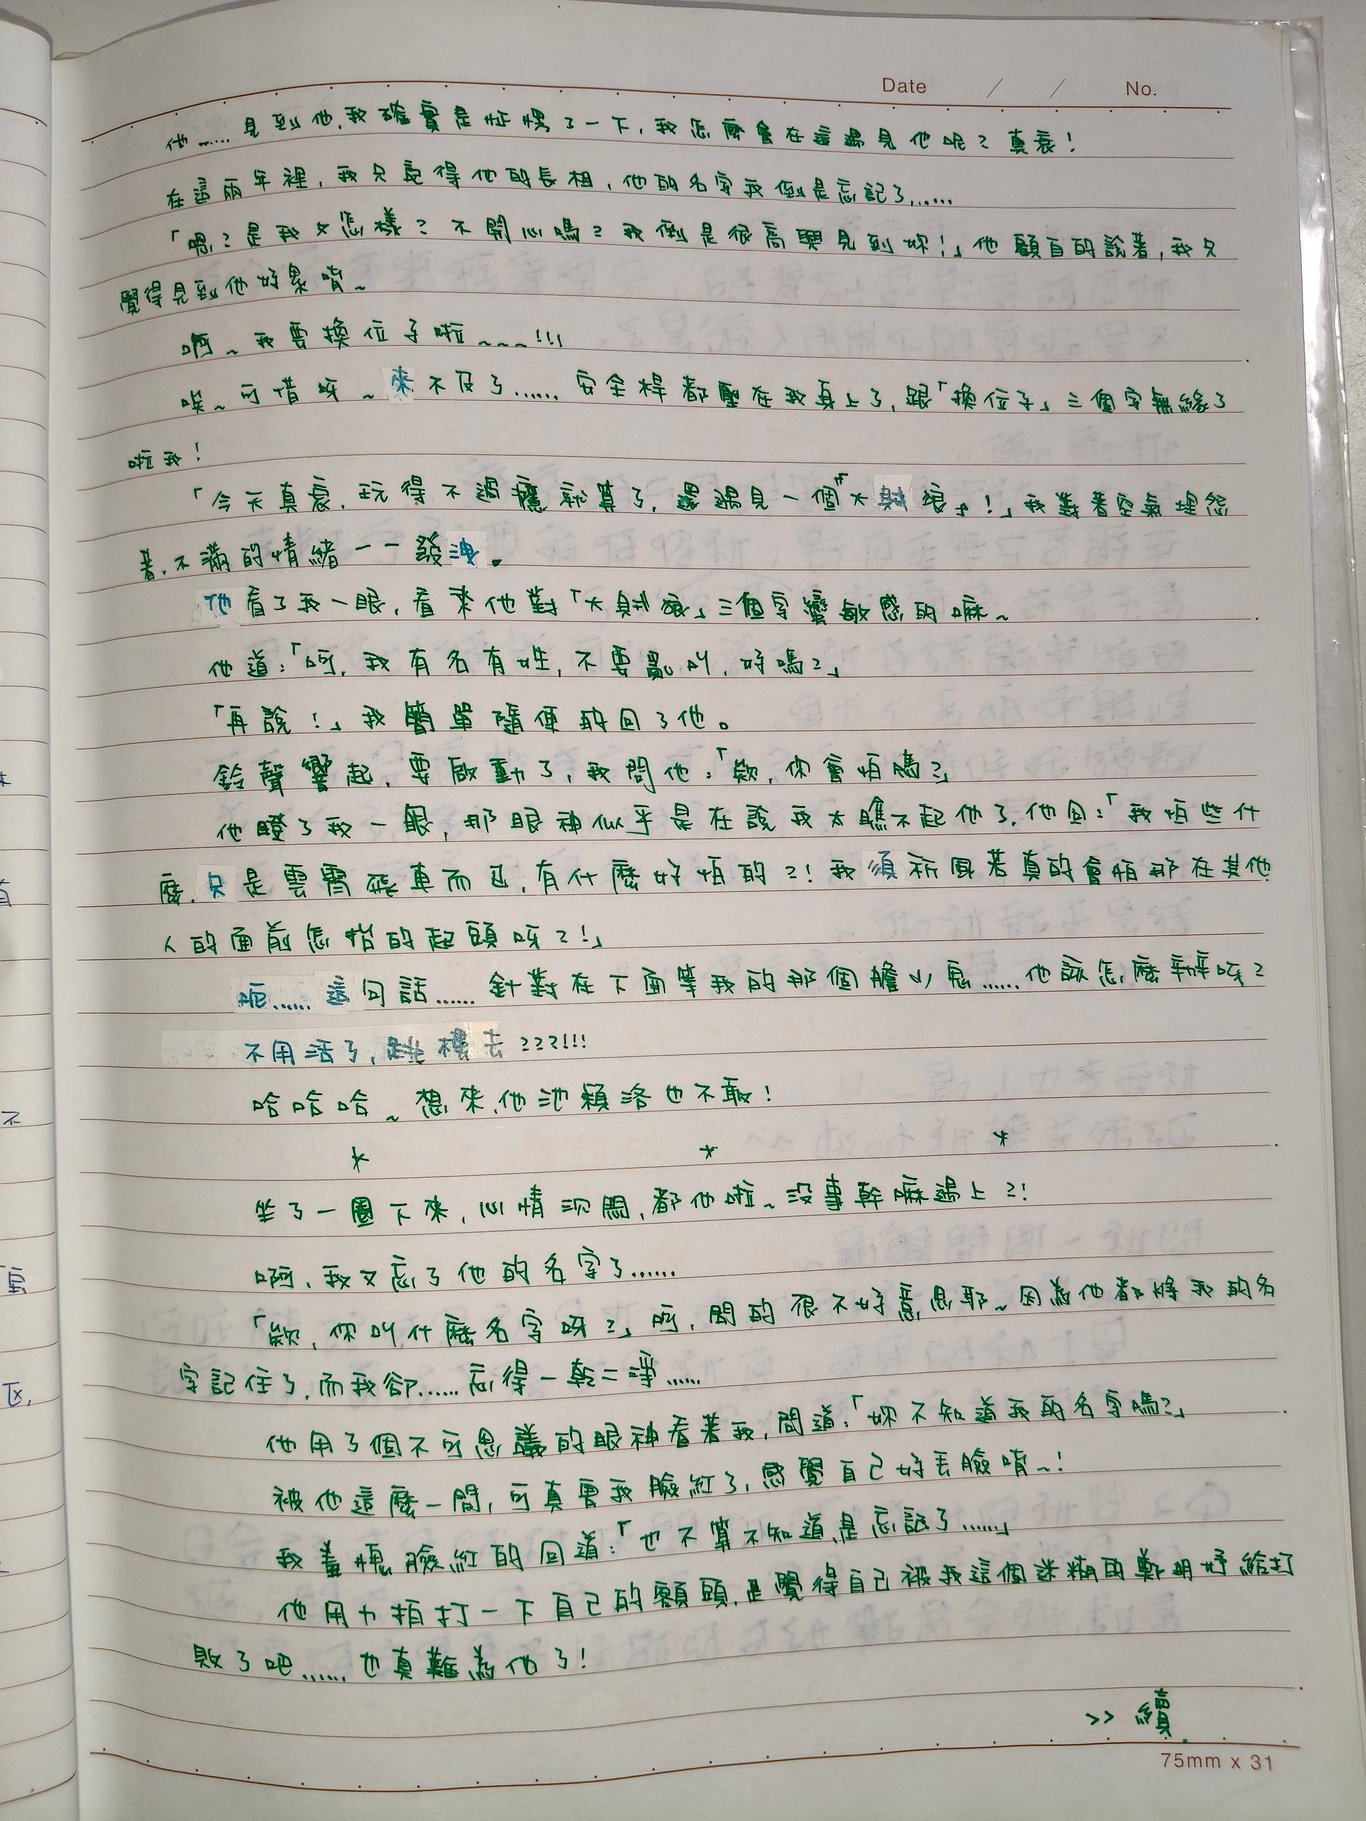 Date / / No.
他……見到他，我確實是怔愣了一下，我怎麼會在這遇見他呢？真衰！
在這兩年裡，我只記得他的長相，他的名字我倒是忘記了……
「嗯？是我又怎樣？不開心嗎？我倒是很高興見到妳！」他顧自的說著，我只
覺得見到他好累唷~
啊~我要換位子啦~~~!!!
唉~可惜呀~來不及了……安全桿都壓在我身上了，跟「換位子」三個字無緣了
啦我！
「今天真衰，玩得不過癮就算了，還遇見一個『大射狼』！」我對著空氣埋怨
著，不滿的情緒一一發洩。
他看了我一眼，看來他對「大射狼」三個字蠻敏感的嘛~
他道：「呵，我有名有姓，不要亂叫，好嗎？」
「再說！」我簡單隨便的回了他。
鈴聲響起，要啟動了，我問他：「欸，你會怕嗎？」
他瞪了我一眼，那眼神似乎是在說我太瞧不起他了，他回：「我怕些什
麼，只是雲霄飛車而已，有什麼好怕的？！我須祈風若真的會怕那在其他
人的面前怎抬的起頭呀？！」
呃……這句話……針對在下面等我的那個膽小鬼……他該怎麼辦呀？
不用活了，跳樓去???!!!
哈哈哈~想來，他池賴洛也不敢！
* * *
坐了一圈下來，心情沉悶，都他啦~沒事幹嘛遇上？！
啊，我又忘了他的名字了……
「欸，你叫什麼名字呀？」呵，問的很不好意思耶~因為他都將我的名
字記住了，而我卻……忘得一乾二淨……
他用了個不可思議的眼神看著我，問道：「妳不知道我的名字嗎？」
被他這麼一問，可真要我臉紅了，感覺自己好丟臉唷~！
我羞愧臉紅的回道：「也不算不知道，是忘記了……」
他用力拍打一下自己的額頭，是覺得自己被我這個迷糊的鄭明妤給打
敗了吧……也真難為他了！
>> 續
75mm x 31